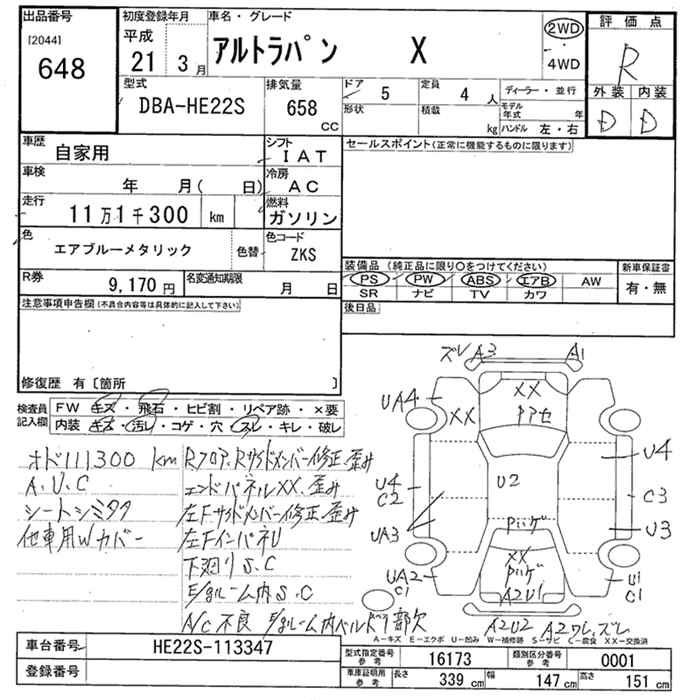 出品番号
[2044]
648
初度登録年月
平成
21 3月
車名・グレード
アルトラパン X
2WD
4WD
評価点
R
外装 内装
D D
型式
DBA-HE22S
排気量
658
CC
ドア 5
定員 4 人
形状
積載 kg
ディーラー・並行
モデル年式 年
ハンドル 左・右
車歴
自家用
シフト
IAT
セールスポイント(正常に機能するものに限ります)
車検
年 月( 日)
冷房
AC
走行
11万1千300 km
燃料
ガソリン
色
エアブルーメタリック
色替
色コード
ZKS
装備品 (純正品に限り○をつけてください)
PS PW ABS エアB AW
SR ナビ TV カワ
新車保証書
有・無
R券
9,170円
名変通知期限
月 日
後日品
注意事項申告欄(不具合内容等は具体的に記入して下さい)
修復歴 有〔箇所 〕
検査員記入欄
FW キズ・飛石・ヒビ割・リペア跡・×要
内装 キズ・汚レ・コゲ・穴・スレ・キレ・破レ
オド111300 km
A.U.C
シートシミタク
他車用Wカバー
Rフロア、Rサイドメンバー修正、歪み
エンドパネルXX、歪み
左Fサイドメンバー修正、歪み
左FインパネU
下廻りS.C
E/gルーム内S.C
A/C不良 E/gルーム内ベルト1部欠
ズレ A3 A1
XX
UA4
XX
U4
U4
C2
U2
C3
UA3
U3
XX
UA2
C1
A2U1
U1
C1
A2U2 A2ワレ、ズレ
A-キズ E-エクボ U-凹み W-補修跡 S-サビ C-腐食 XX-交換済
車台番号
HE22S-113347
登録番号
型式指定番号
参考
16173
類別区分番号
参考
0001
車庫証明用
参考
長さ 339 cm
幅 147 cm
高さ 151 cm